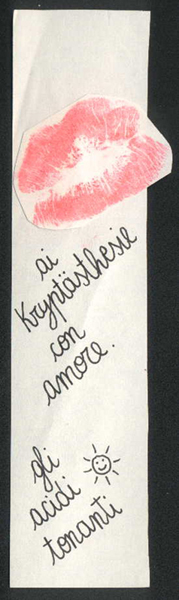 ai
Kryptästhesie
con
amore.
gli
acidi
tonanti